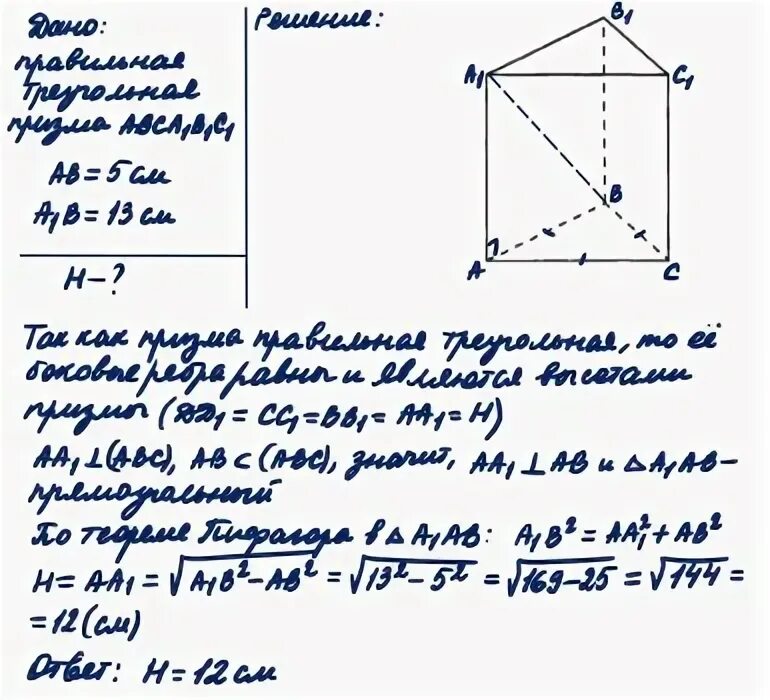 Дано:
правильная
треугольная
призма ABCA₁B₁C₁
AB = 5 см
A₁B = 13 см
H - ?
Решение:
B₁
A₁
C₁
B
A
C
Так как призма правильная треугольная, то её
боковые ребра равны и являются высотами
призмы (DD₁ = CC₁ = BB₁ = AA₁ = H)
AA₁ ⊥ (ABC), AB ⊂ (ABC), значит, AA₁ ⊥ AB и △A₁AB -
прямоугольный
По теореме Пифагора в △A₁AB: A₁B² = AA₁² + AB²
H = AA₁ = √(A₁B² - AB²) = √(13² - 5²) = √(169 - 25) = √144 =
= 12 (см)
Ответ: H = 12 см